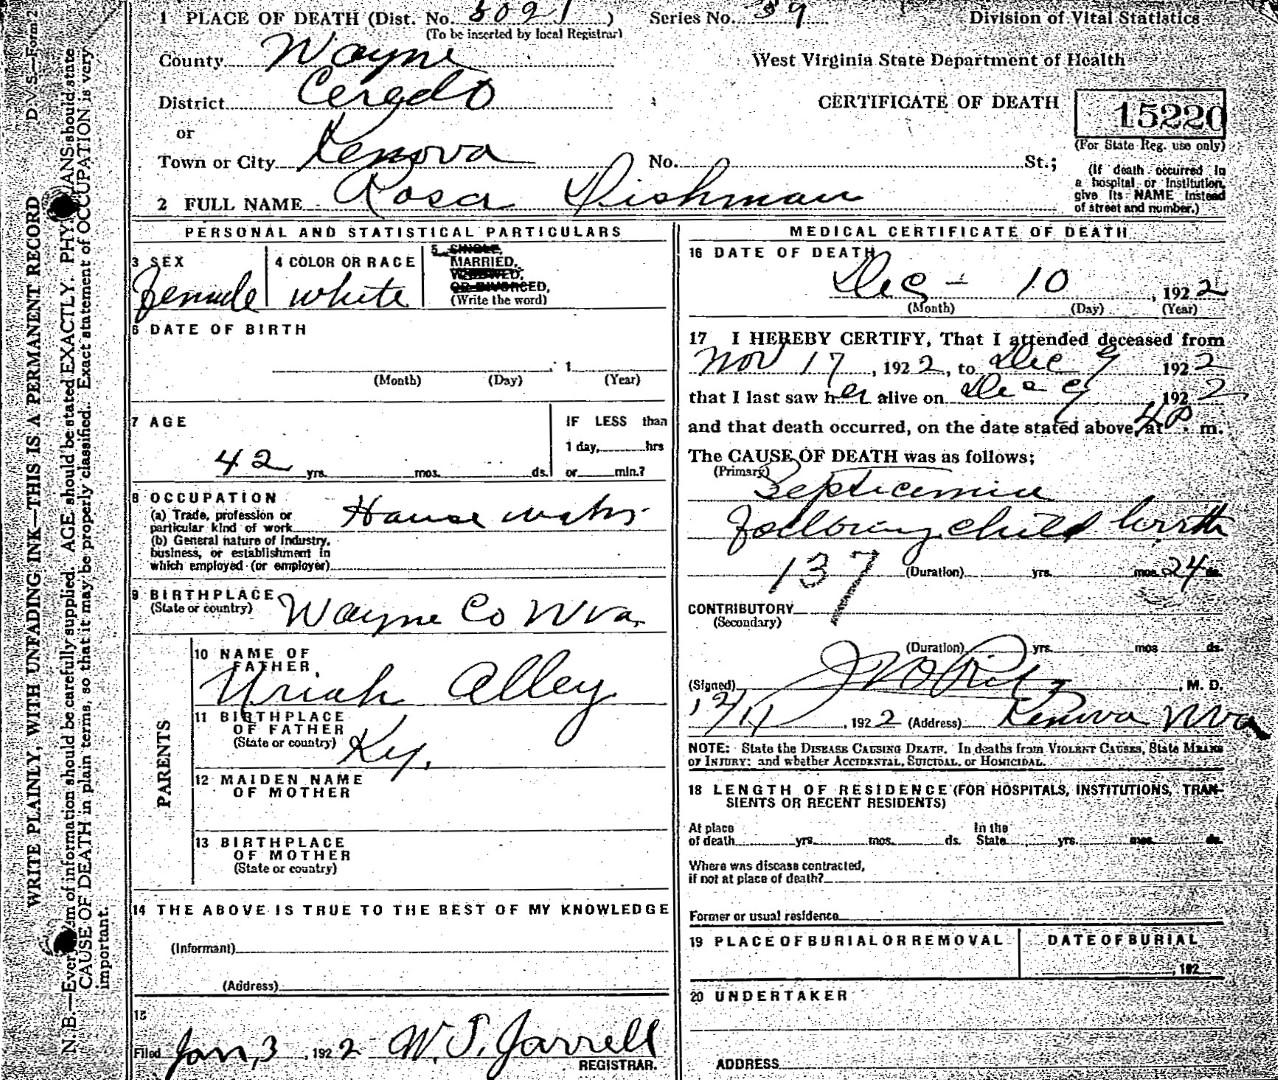 1 PLACE OF DEATH (Dist. No. 5021 ) Series No. 39 Division of Vital Statistics
(To be inserted by local Registrar)
County Wayne West Virginia State Department of Health
District Ceredo CERTIFICATE OF DEATH 15220
or (For State Reg. use only)
Town or City Kenova No. St.;
(If death occurred in
a hospital or Institution,
give its NAME instead
of street and number.)
2 FULL NAME Rosa Dishman
PERSONAL AND STATISTICAL PARTICULARS
3 SEX 4 COLOR OR RACE 5 SINGLE,
MARRIED,
WIDOWED,
OR DIVORCED,
(Write the word)
Female white
6 DATE OF BIRTH
1
(Month) (Day) (Year)
7 AGE IF LESS than
1 day, hrs
42 yrs. mos. ds. or min.?
8 OCCUPATION
(a) Trade, profession or
particular kind of work House
(b) General nature of Industry,
business, or establishment in
which employed (or employer)
9 BIRTHPLACE
(State or country) Wayne Co W Va.
PARENTS
10 NAME OF
FATHER Uriah Alley
11 BIRTHPLACE
OF FATHER
(State or country) Ky.
12 MAIDEN NAME
OF MOTHER
13 BIRTHPLACE
OF MOTHER
(State or country)
14 THE ABOVE IS TRUE TO THE BEST OF MY KNOWLEDGE
(Informant)
(Address)
15
Filed Jan, 3, 192 2 W. J. Jarrell
REGISTRAR.
MEDICAL CERTIFICATE OF DEATH
16 DATE OF DEATH
Dec - 10, 192 2
(Month) (Day) (Year)
17 I HEREBY CERTIFY, That I attended deceased from
Nov 17, 192 2, to Dec 9 192 2
that I last saw her alive on Dec 9 192 2
and that death occurred, on the date stated above, at 4 P. m.
The CAUSE OF DEATH was as follows;
(Primary)
Septicemia
following child birth
137 (Duration) yrs. mos. 24 ds.
CONTRIBUTORY
(Secondary)
(Duration) yrs. mos ds.
(Signed) M. D.
12/11, 192 2 (Address) Kenova W Va
NOTE: State the DISEASE CAUSING DEATH. In deaths from VIOLENT CAUSES, State MEANS
OF INJURY; and whether ACCIDENTAL, SUICIDAL, or HOMICIDAL.
18 LENGTH OF RESIDENCE (FOR HOSPITALS, INSTITUTIONS, TRAN-
SIENTS OR RECENT RESIDENTS)
At place In the
of death yrs. mos. ds. State yrs. mos. ds.
Where was disease contracted,
if not at place of death?
Former or usual residence
19 PLACE OF BURIAL OR REMOVAL DATE OF BURIAL
, 192
20 UNDERTAKER
ADDRESS
WRITE PLAINLY, WITH UNFADING INK—THIS IS A PERMANENT RECORD D. V. S.—Form 2
N. B.—Every item of information should be carefully supplied. AGE should be stated EXACTLY. PHYSICIANS should state
CAUSE OF DEATH in plain terms, so that it may be properly classified. Exact statement of OCCUPATION is very
important.